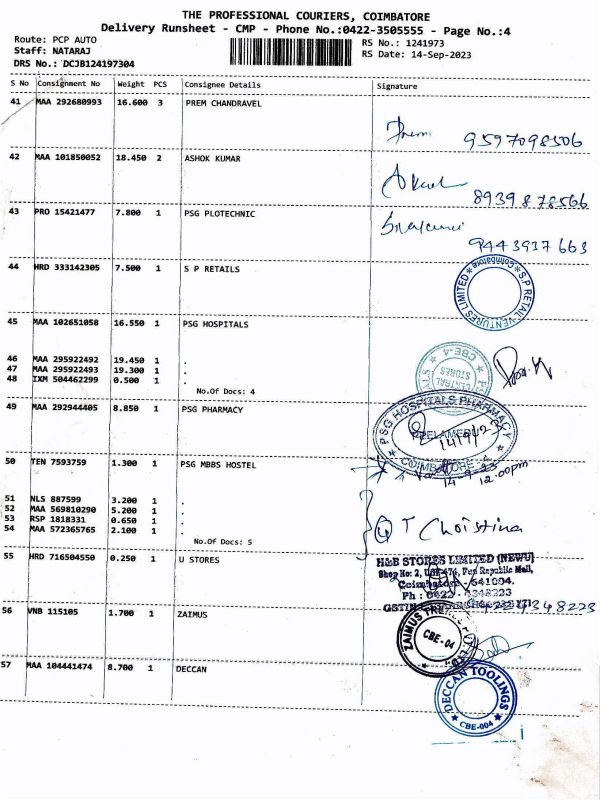 THE PROFESSIONAL COURIERS, COIMBATORE
Delivery Runsheet - CMP - Phone No.:0422-3505555 - Page No.:4
Route: PCP AUTO
Staff: NATARAJ
DRS No.: DCJB124197304
RS No.: 1241973
RS Date: 14-Sep-2023
S No Consignment No Weight PCS Consignee Details Signature
41 MAA 292680993 16.600 3 PREM CHANDRAVEL
Prem 9597098506
42 MAA 101850052 18.450 2 ASHOK KUMAR
8939878566
43 PRO 15421477 7.800 1 PSG PLOTECHNIC
9443937663
44 HRD 333142305 7.500 1 S P RETAILS
S.P RETAIL VENTURES LIMITED * Coimbatore *
45 MAA 102651058 16.550 1 PSG HOSPITALS
46 MAA 295922492 19.450 1 .
47 MAA 295922493 19.300 1 .
48 IXM 504462299 0.500 1 .
No.Of Docs: 4
CENTRAL STORES CBE-4
49 MAA 292944405 8.850 1 PSG PHARMACY
* PSG HOSPITALS PHARMACY *
PEELAMEDU
COIMBATORE - 4
50 TEN 7593759 1.300 1 PSG MBBS HOSTEL
14-9-23
12.00pm
51 NLS 887599 3.200 1 .
52 MAA 569810290 5.200 1 .
53 RSP 1818331 0.650 1 .
54 MAA 572365765 2.100 1 .
T Christina
No.Of Docs: 5
55 HRD 716504550 0.250 1 U STORES
H&B STORES LIMITED (NEWU)
Shop No: 2, Fun Republic Mall,
Coimbatore - 641004.
Ph : 0422 -
GSTIN
56 VNB 115105 1.700 1 ZAIMUS
ZAIMUS
CBE-04
57 MAA 104441474 8.700 1 DECCAN
DECCAN TOOLINGS
* CBE-004 *